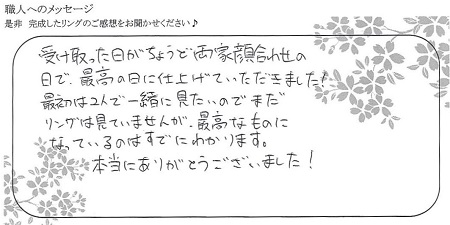 職人へのメッセージ
是非 完成したリングのご感想をお聞かせください♪
受け取った日がちょうど両家顔合わせの
日で、最高の日に仕上げていただきました!
最初は2人で一緒に見たいのでまだ
リングは見ていませんが、最高なものに
なっているのはすでにわかります。
本当にありがとうございました!